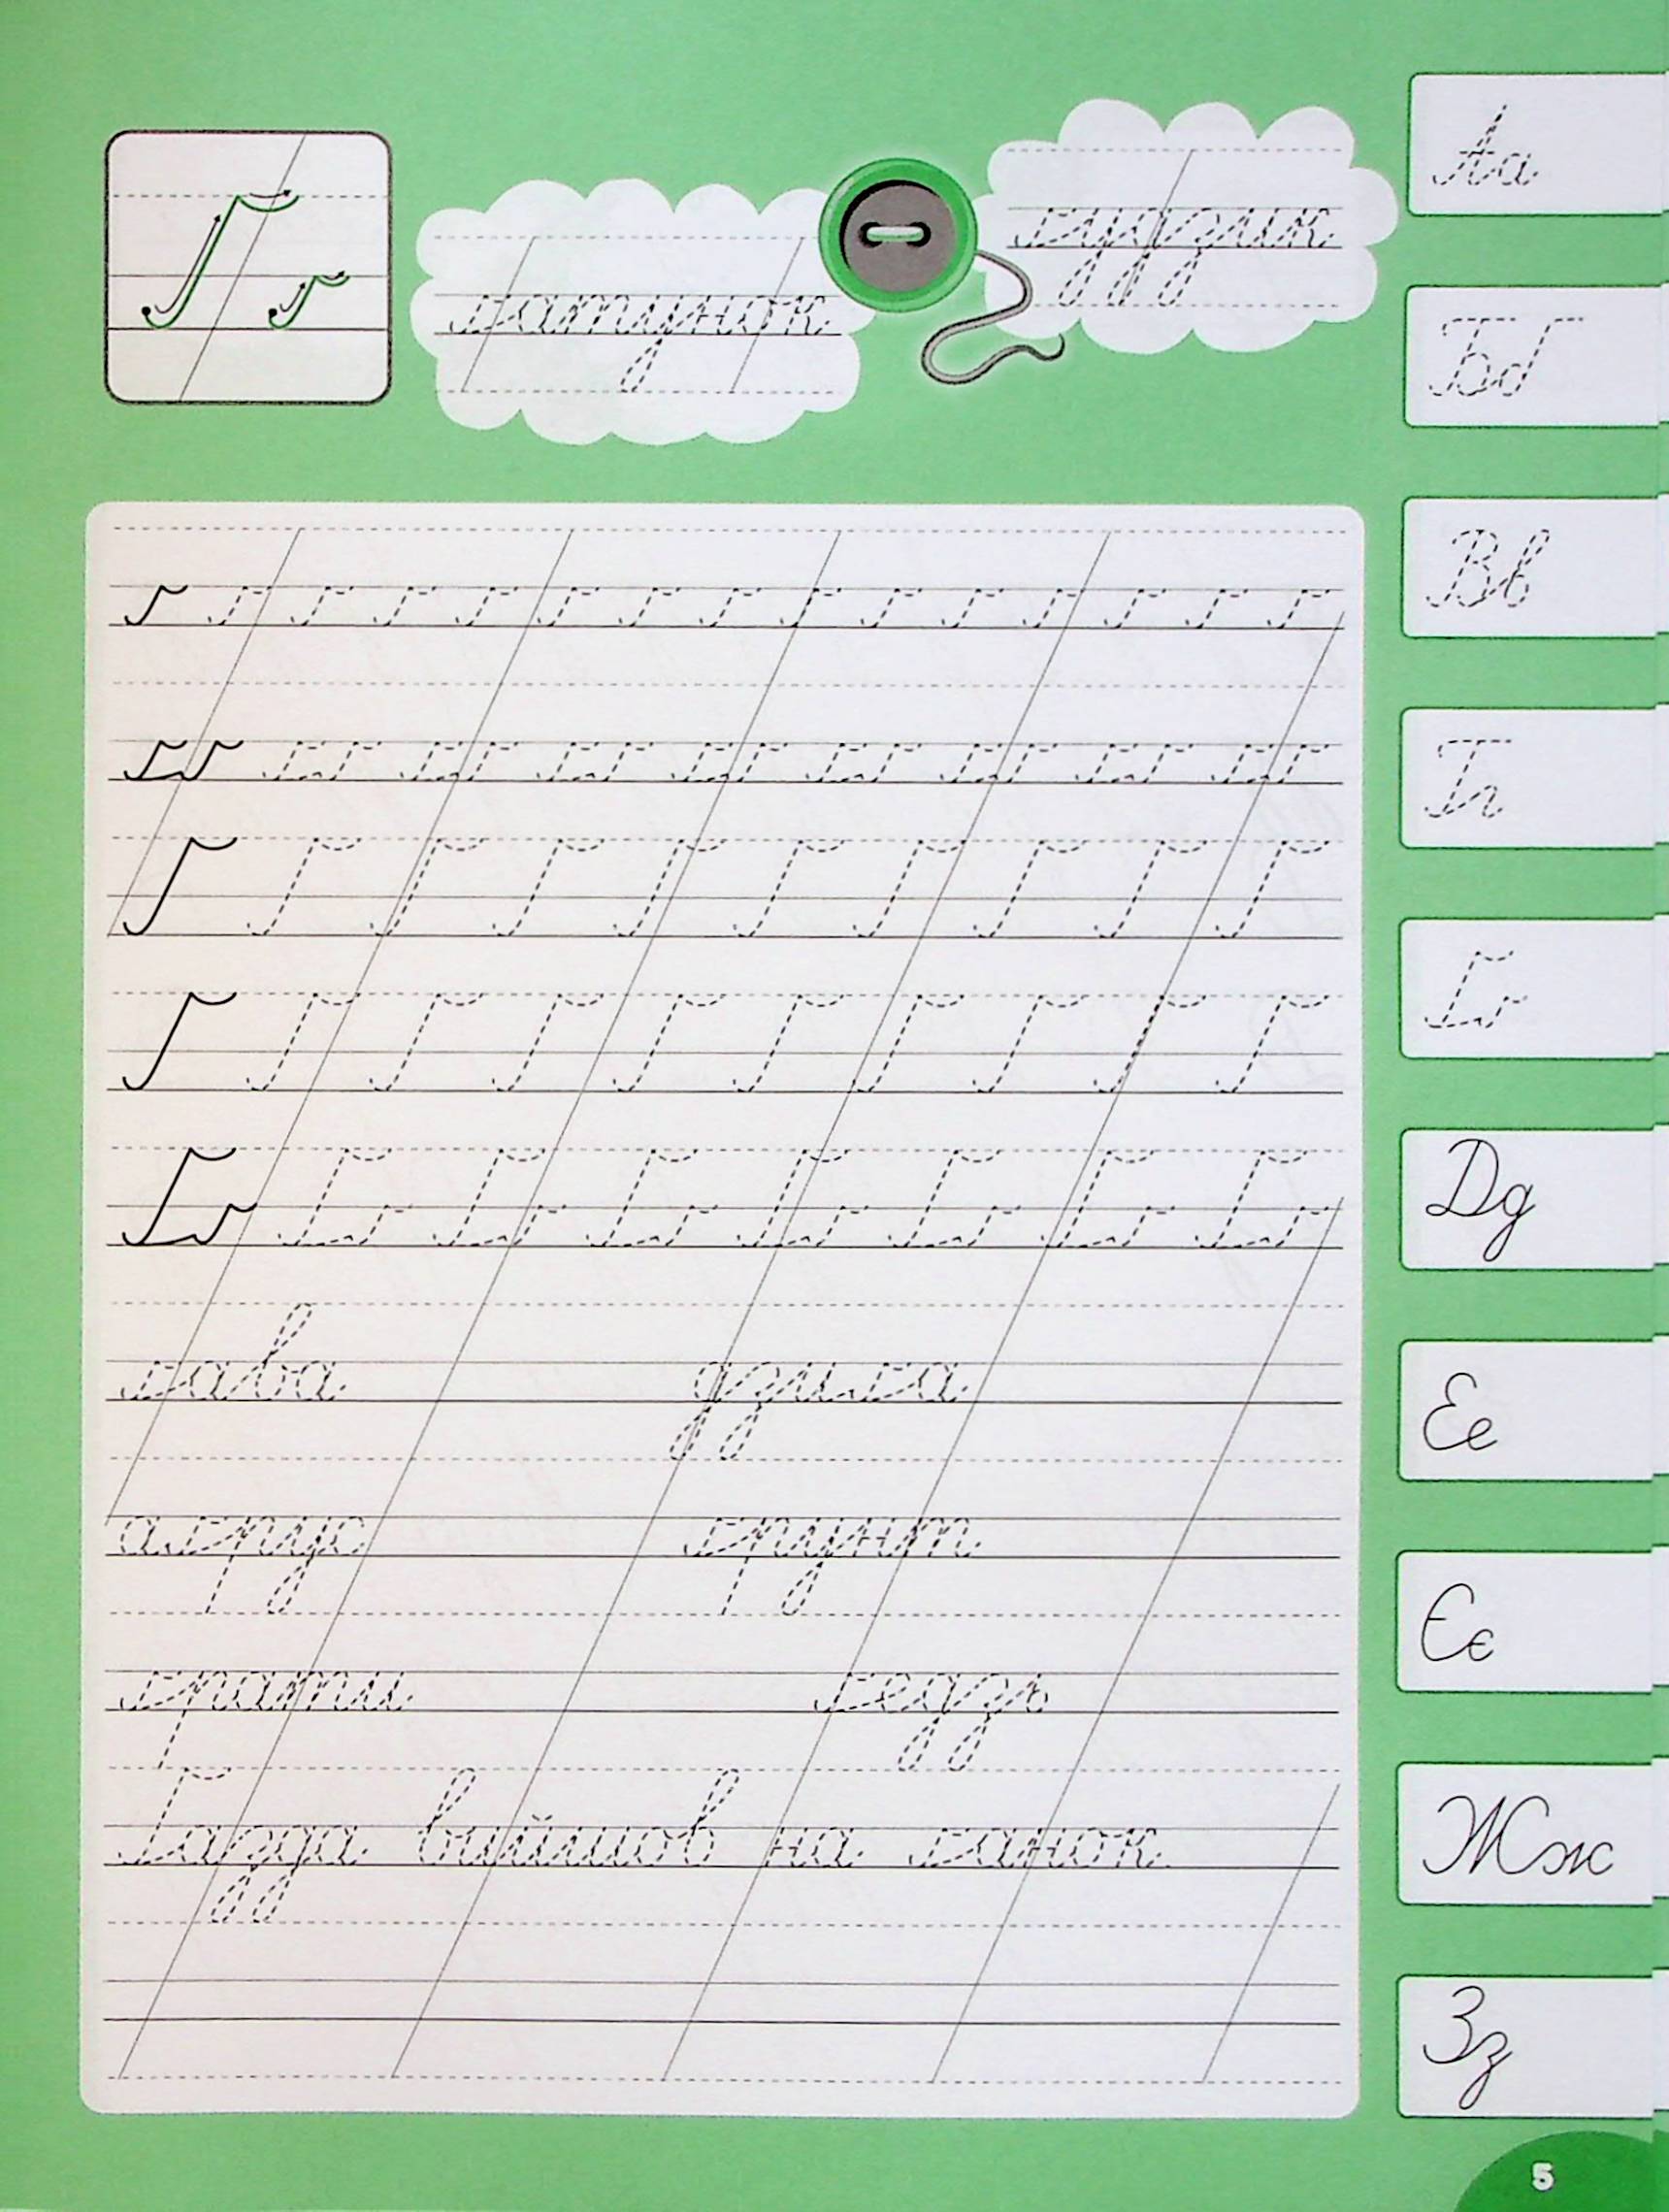 Ґ ґ
ґатунок
ґудзик
ґ ґ ґ ґ ґ ґ ґ ґ ґ ґ ґ ґ ґ ґ ґ
ґґ ґґ ґґ ґґ ґґ ґґ ґґ ґґ ґґ
Ґ Ґ Ґ Ґ Ґ Ґ Ґ Ґ Ґ Ґ
Ґ Ґ Ґ Ґ Ґ Ґ Ґ Ґ Ґ Ґ
Ґґ Ґґ Ґґ Ґґ Ґґ Ґґ Ґґ Ґґ
ґава дзиґа
аґрус ґрунт
ґрати ґедзь
Ґазда вийшов на ґанок.
Аа
Бб
Вв
Гг
Ґґ
Дд
Ее
Єє
Жж
Зз
5